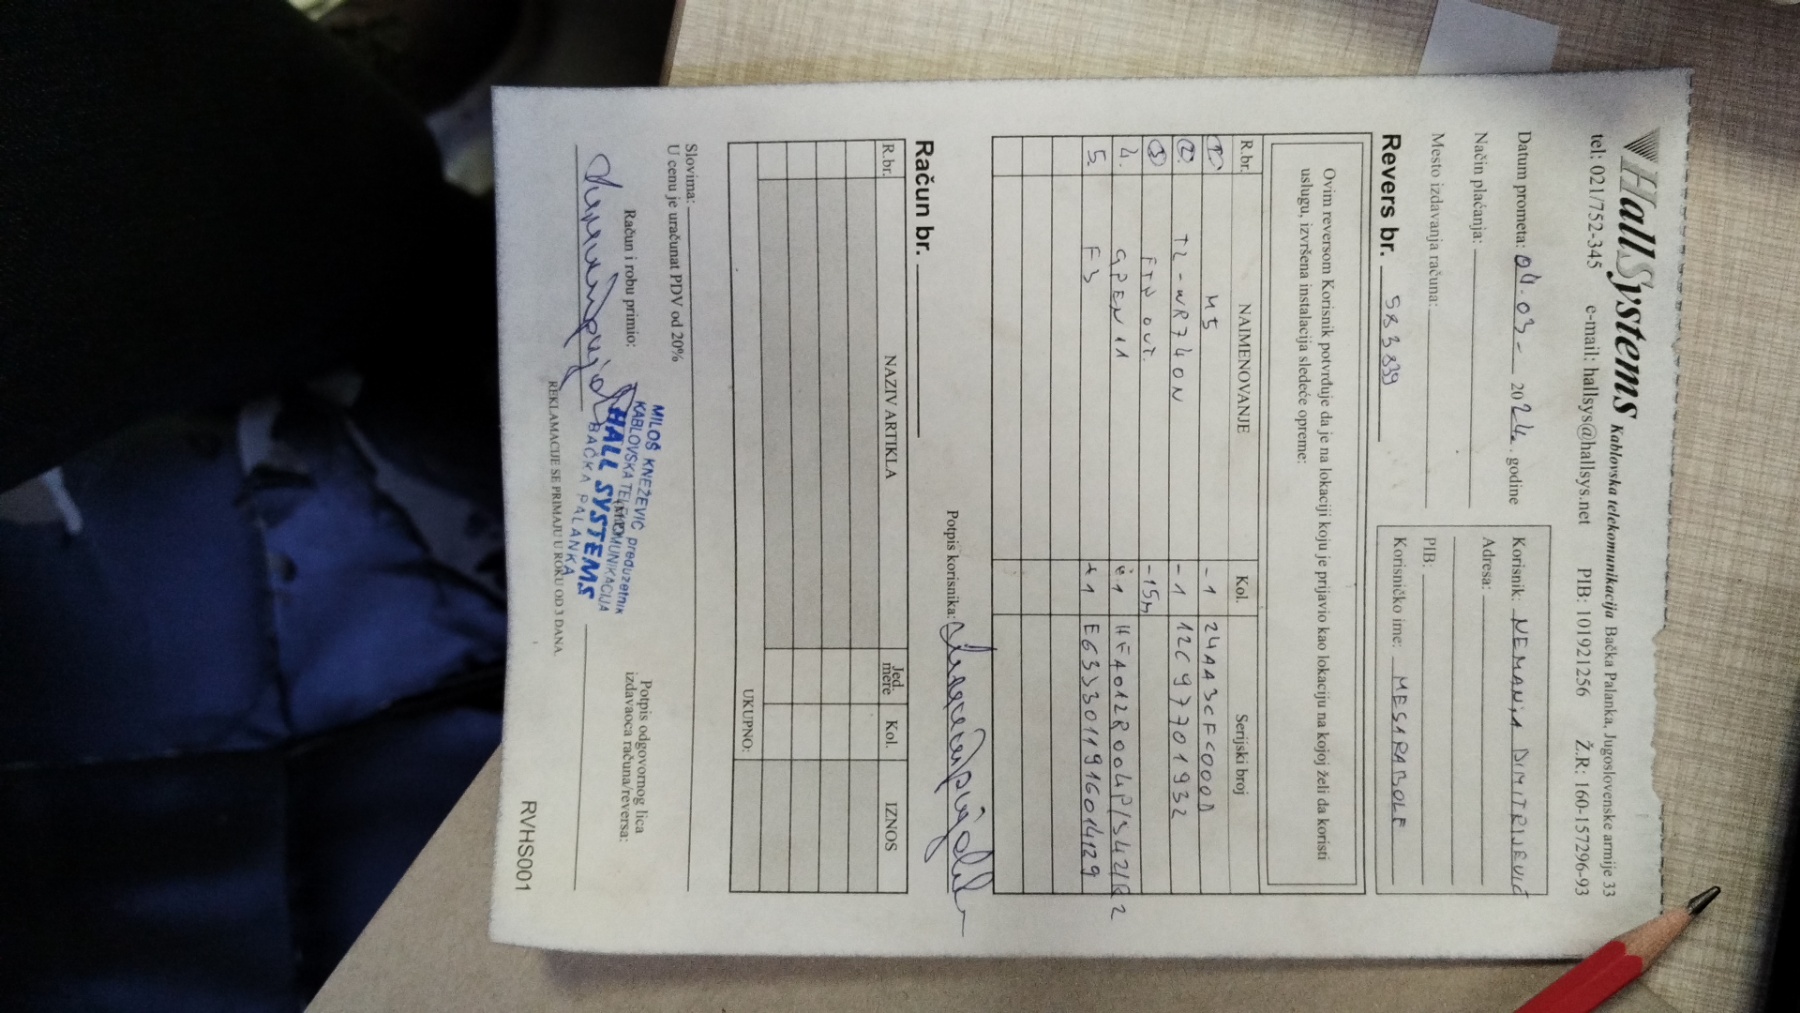 HallSystems Kablovska telekomunikacija Bačka Palanka, Jugoslovenske armije 33
tel: 021/752-345 e-mail: hallsys@hallsys.net PIB: 101921256 Ž.R: 160-157296-93
Datum prometa: 04.03- 2024. godine
Način plaćanja:
Mesto izdavanja računa:
Korisnik: NEMANJA DIMITRIJEVIĆ
Adresa:
PIB:
Korisničko ime: MESARABOLE
Revers br. 583839
Ovim reversom Korisnik potvrđuje da je na lokaciji koju je prijavio kao lokaciju na kojoj želi da koristi
uslugu, izvršena instalacija sledeće opreme:
R.br. NAIMENOVANJE Kol. Serijski broj
1. M5 -1 24AA3CFC000D
2. TL-WR740N -1 12C97701932
3 FTP OUT. -15m
4. GPEN11 +1 HFA012R004P/S42/62
5. F3 +1 E6333011916014129
Potpis korisnika:
Račun br.
R.br. NAZIV ARTIKLA Jed. mere Kol. IZNOS
UKUPNO:
Slovima:
U cenu je uračunat PDV od 20%
Račun i robu primio:
Potpis odgovornog lica
izdavaoca računa/reversa:
MILOŠ KNEŽEVIĆ preduzetnik
KABLOVSKA TELEKOMUNIKACIJA
HALL SYSTEMS
BAČKA PALANKA
REKLAMACIJE SE PRIMAJU U ROKU OD 3 DANA.
RVHS001